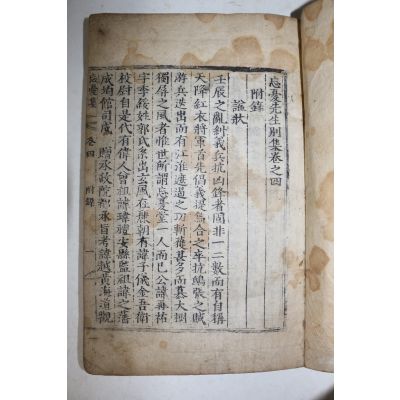 忘憂先生別集卷之四
附錄
諡狀
壬辰之亂糾義兵抗凶鋒者固非一二數而有自稱
天降紅衣將軍首先倡義提烏合之卒抗鴟張之賊
游兵迭出而有江淮遮遏之功斬 甚多而慕大樹
獨屏之風者惟世所謂忘憂堂一人而已公諱再祐
字季綏姓郭氏系出玄風在麗朝有諱子儀金吾衛
校尉自是代有偉人曾祖諱瑋禮安縣監祖諱之藩
成均館司 贈承政院都承旨考諱越黃海道觀
忘憂集 卷四 附錄 一